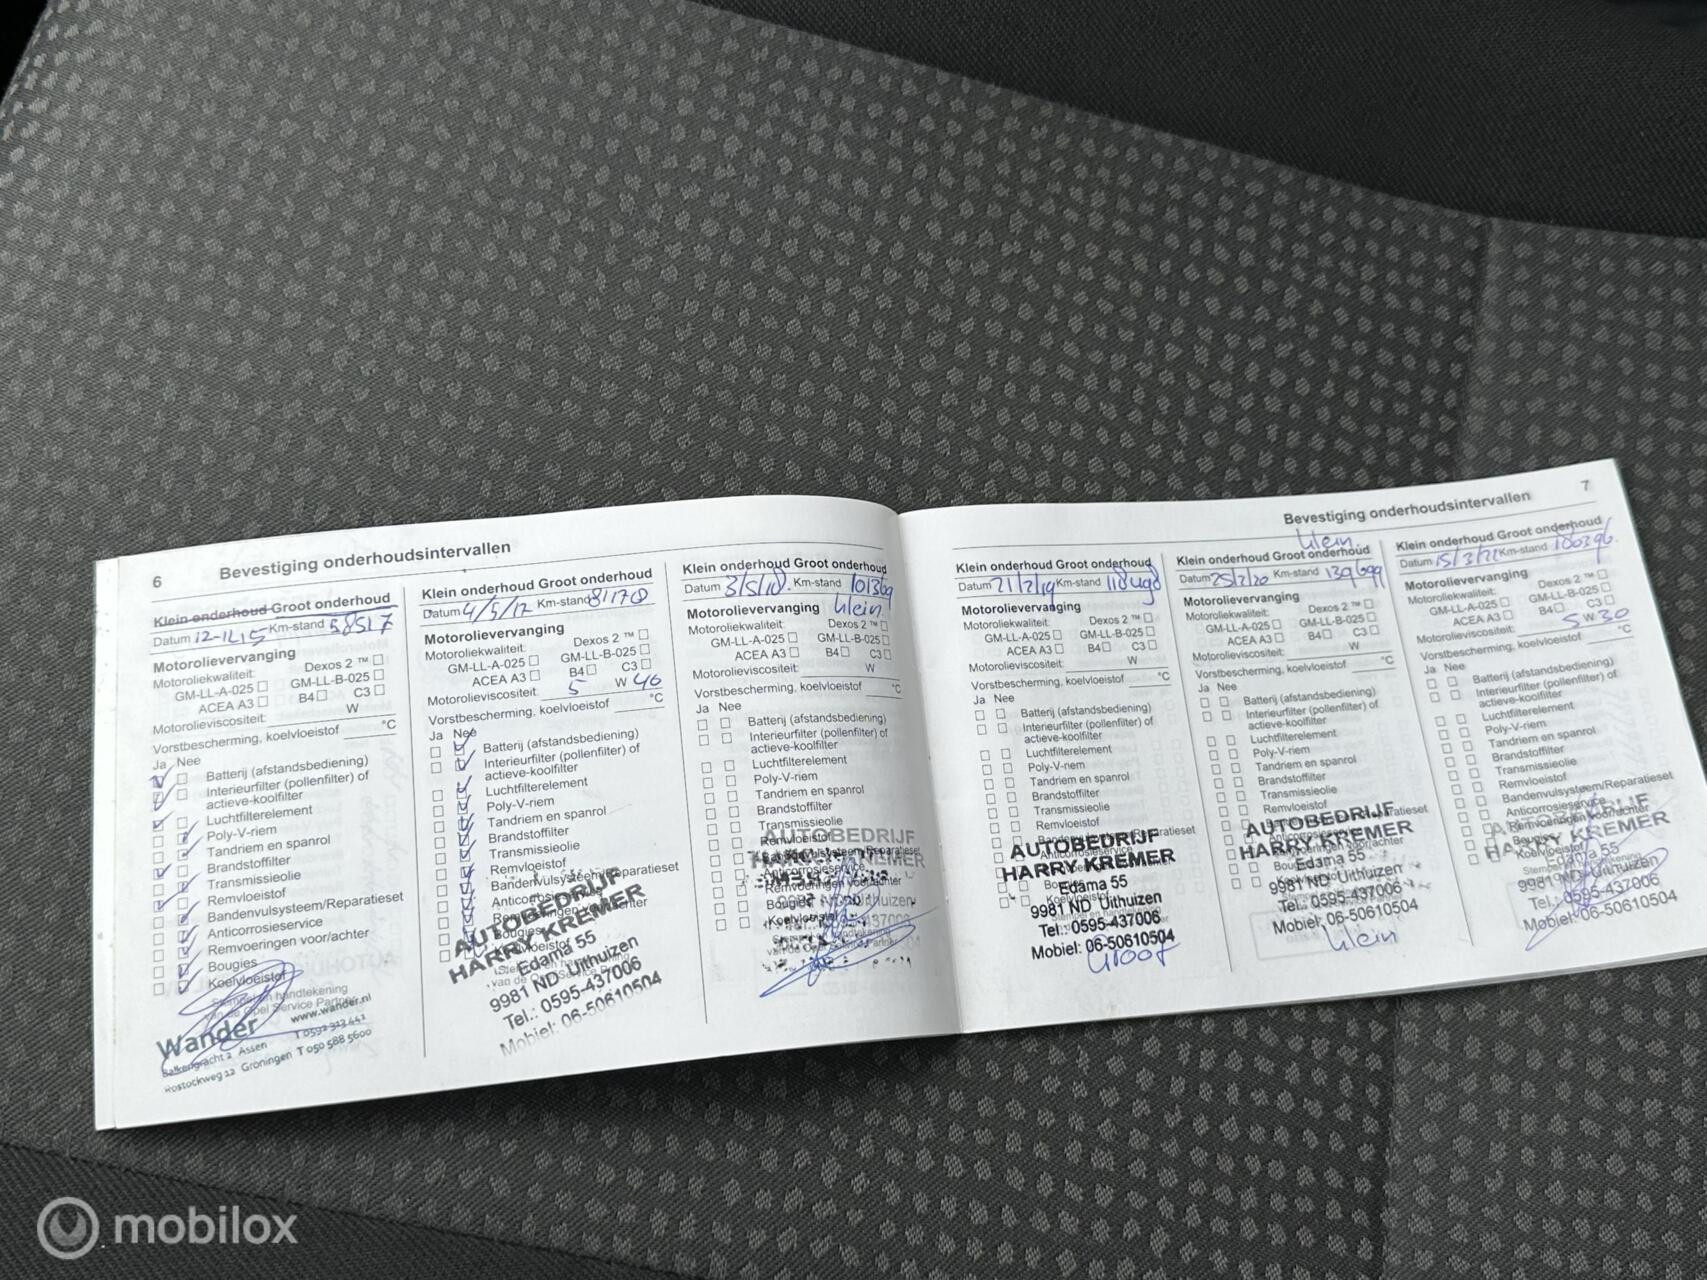 6
Bevestiging onderhoudsintervallen
Klein onderhoud Groot onderhoud
Datum 12-11-15 Km-stand 58517
Motorolievervanging
Motoroliekwaliteit: Dexos 2 ™
GM-LL-A-025 GM-LL-B-025
ACEA A3 B4 C3
Motorolieviscositeit: W
Vorstbescherming, koelvloeistof °C
Ja Nee
Batterij (afstandsbediening)
Interieurfilter (pollenfilter) of
actieve-koolfilter
Luchtfilterelement
Poly-V-riem
Tandriem en spanrol
Brandstoffilter
Transmissieolie
Remvloeistof
Bandenvulsysteem/Reparatieset
Anticorrosieservice
Remvoeringen voor/achter
Bougies
Koelvloeistof
Stempel en handtekening
van de Opel Service Partner
Wander www.wander.nl
Balkengracht 2 Assen T 0592 313 441
Rostockweg 12 Groningen T 050 588 5600
Klein onderhoud Groot onderhoud
Datum 4/5/17 Km-stand 81170
Motorolievervanging
Motoroliekwaliteit: Dexos 2 ™
GM-LL-A-025 GM-LL-B-025
ACEA A3 B4 C3
Motorolieviscositeit: 5 W 40
Vorstbescherming, koelvloeistof °C
Ja Nee
Batterij (afstandsbediening)
Interieurfilter (pollenfilter) of
actieve-koolfilter
Luchtfilterelement
Poly-V-riem
Tandriem en spanrol
Brandstoffilter
Transmissieolie
Remvloeistof
Bandenvulsysteem/Reparatieset
AUTOBEDRIJF
HARRY KREMER
Edama 55
9981 ND Uithuizen
Tel.: 0595-437006
Mobiel: 06-50610504
Klein onderhoud Groot onderhoud
Datum 3/5/18 Km-stand 101369
Motorolievervanging klein
Motoroliekwaliteit: Dexos 2 ™
GM-LL-A-025 GM-LL-B-025
ACEA A3 B4 C3
Motorolieviscositeit: W
Vorstbescherming, koelvloeistof °C
Ja Nee
Batterij (afstandsbediening)
Interieurfilter (pollenfilter) of
actieve-koolfilter
Luchtfilterelement
Poly-V-riem
Tandriem en spanrol
Brandstoffilter
Transmissieolie
Remvloeistof
AUTOBEDRIJF
Bougies
Koelvloeistof
7
Bevestiging onderhoudsintervallen
Klein onderhoud Groot onderhoud
Datum 21/2/19 Km-stand 118498
Motorolievervanging
Motoroliekwaliteit: Dexos 2 ™
GM-LL-A-025 GM-LL-B-025
ACEA A3 B4 C3
Motorolieviscositeit: W
Vorstbescherming, koelvloeistof °C
Ja Nee
Batterij (afstandsbediening)
Interieurfilter (pollenfilter) of
actieve-koolfilter
Luchtfilterelement
Poly-V-riem
Tandriem en spanrol
Brandstoffilter
Transmissieolie
Remvloeistof
AUTOBEDRIJF
HARRY KREMER
Edama 55
9981 ND Uithuizen
Tel.: 0595-437006
Mobiel: 06-50610504
Groot
klein
Klein onderhoud Groot onderhoud
Datum 25/2/20 Km-stand 139699
Motorolievervanging
Motoroliekwaliteit: Dexos 2 ™
GM-LL-A-025 GM-LL-B-025
ACEA A3 B4 C3
Motorolieviscositeit: W
Vorstbescherming, koelvloeistof °C
Ja Nee
Batterij (afstandsbediening)
Interieurfilter (pollenfilter) of
actieve-koolfilter
Luchtfilterelement
Poly-V-riem
Tandriem en spanrol
Brandstoffilter
Transmissieolie
Remvloeistof
AUTOBEDRIJF
HARRY KREMER
Edama 55
9981 ND Uithuizen
Tel.: 0595-437006
Mobiel: 06-50610504
klein
Klein onderhoud Groot onderhoud
Datum 15/3/21 Km-stand 160396
Motorolievervanging
Motoroliekwaliteit: Dexos 2 ™
GM-LL-A-025 GM-LL-B-025
ACEA A3 B4 C3
Motorolieviscositeit: 5 W 30
Vorstbescherming, koelvloeistof °C
Ja Nee
Batterij (afstandsbediening)
Interieurfilter (pollenfilter) of
actieve-koolfilter
Luchtfilterelement
Poly-V-riem
Tandriem en spanrol
Brandstoffilter
Transmissieolie
Remvloeistof
Bandenvulsysteem/Reparatieset
Anticorrosieservice
Remvoeringen voor/achter
AUTOBEDRIJF
HARRY KREMER
Edama 55
9981 ND Uithuizen
Tel.: 0595-437006
Mobiel: 06-50610504
mobilox